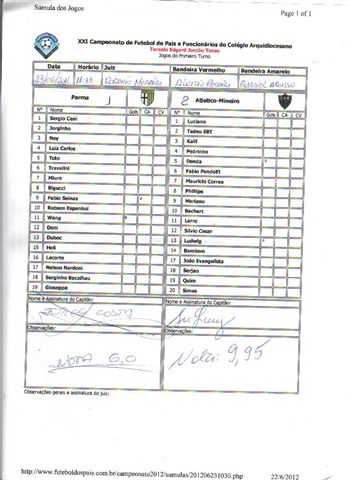 Súmula dos Jogos
Page 1 of 1
XXI Campeonato de Futebol de Pais e Funcionários do Colégio Arquidiocesano
Torneio Edgard Jordão Tonso
Jogos do Primeiro Turno
Data Horário Juiz Bandeira Vermelho Bandeira Amarelo
Parma 1 2 Atletico-Mineiro
Nº Nome Gols CA CV Nº Nome Gols CA CV
1 Sergio Ceni 1 Luciano
2 Jorginho 2 Tadeu SBT
3 Ney 3 Kalil
4 Luiz Carlos 4 Pedrinho
5 Toto 5 Denda
6 Travalini 6 Fabio Pandolfi
7 Miura 7 Mauricio Correa
8 Bigucci 8 Phillipe
9 Fabio Seinas 9 Mariano
10 Robson Espanhol 10 Bachert
11 Wang 11 Lerro
12 Doni 12 Silvio Cesar
13 Duboc 13 Ludwig
15 Heli 14 Bambom
16 Lacorte 17 João Evangelista
17 Nelson Nardoni 18 Serjao
18 Serginho Bacalhau 19 Quim
19 Giuseppe 20 Simas
Nome e Assinatura do Capitão: Nome e Assinatura do Capitão:
COSTA
Observações: Observações:
NOTA 6,0 Nota: 9,95
Observações gerais e assinatura do Juiz:
http://www.futeboldospais.com.br/campeonato2012/sumulas/201206231030.php 22/6/2012